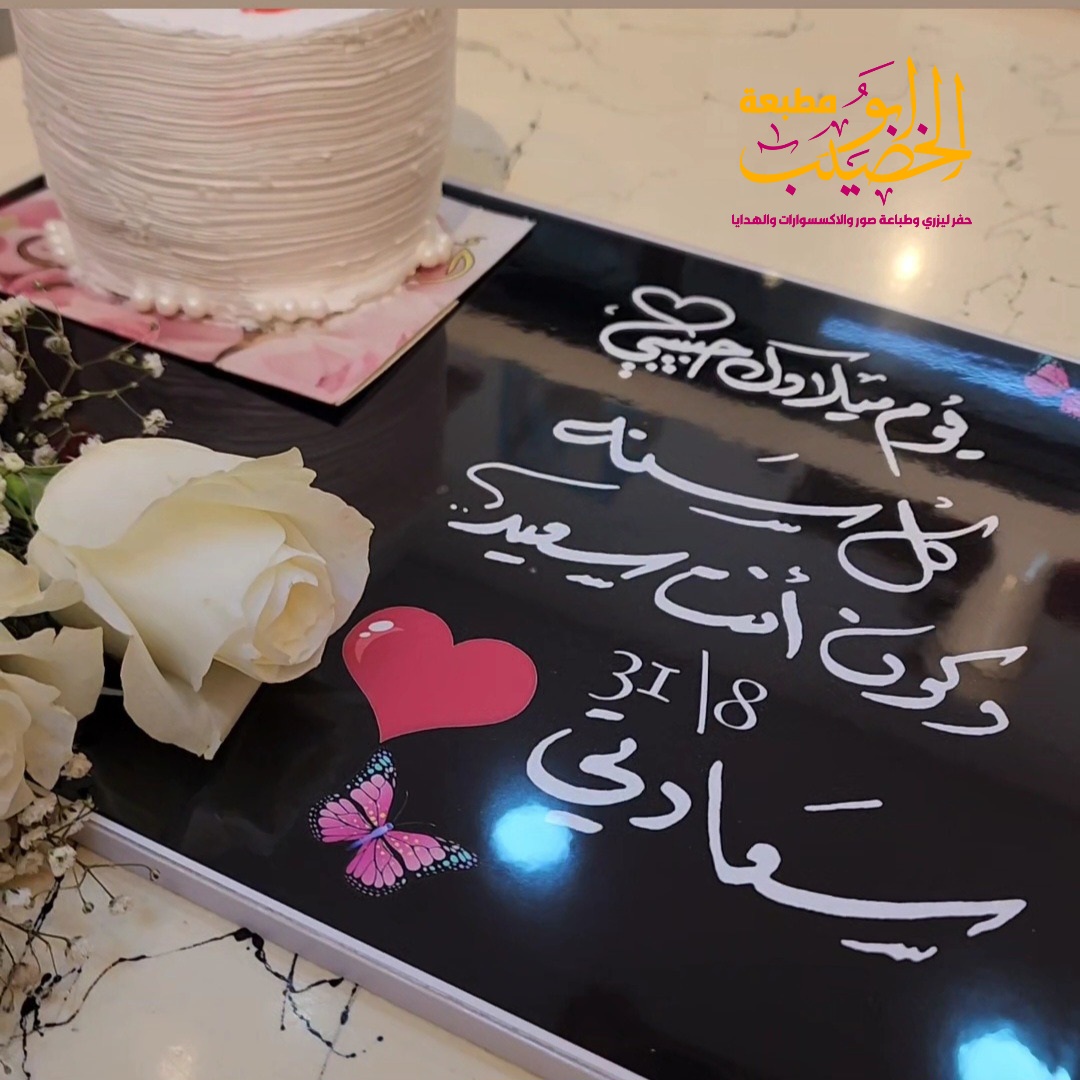 مطبعة
ابو الخصيب
حفر ليزري وطباعة صور والاكسسوارات والهدايا
يوم ميلادك حبيبي
كل سنه
وكون أنت سعيد
31/8
سعادتي